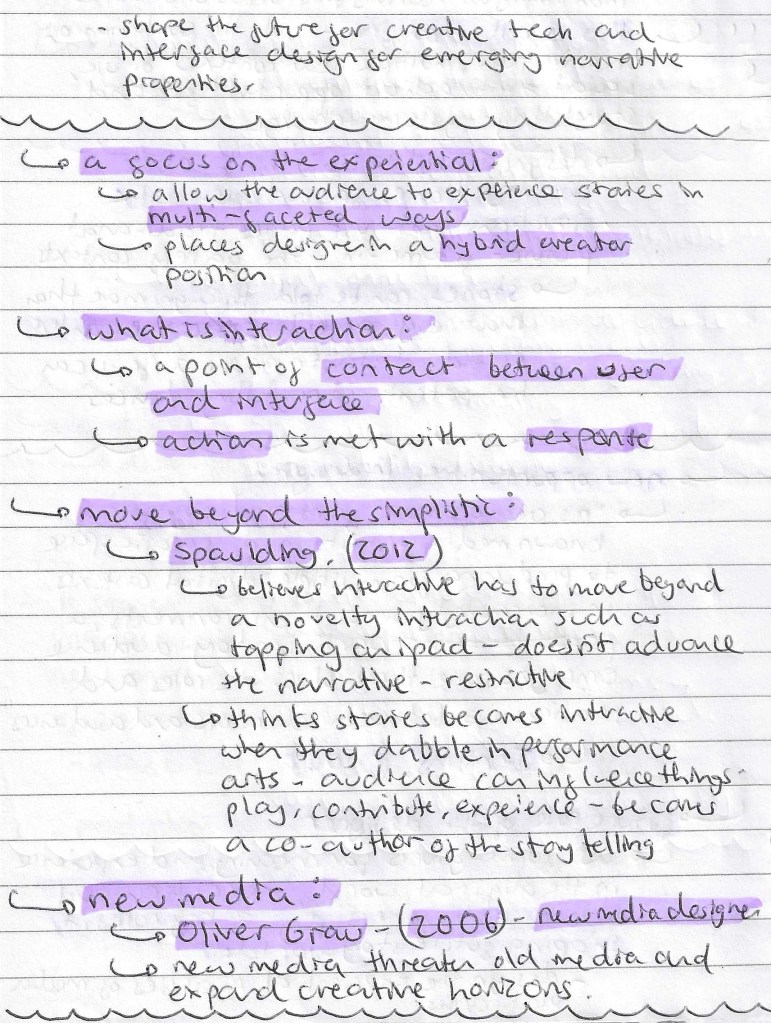 shape the future for creative tech and
interface design for emerging narrative
properties.
a focus on the experiential:
allow the audience to experience stories in
multi-faceted ways
places designer in a hybrid creator
position
what is interaction:
a point of contact between user
and interface
action is met with a response
move beyond the simplistic:
Spaulding, (2012)
believes interactive has to move beyond
a novelty interaction such as
tapping an ipad - doesn't advance
the narrative - restrictive
thinks stories becomes interactive
when they dabble in performance
arts - audience can influence things -
play, contribute, experience - becomes
a co-author of the story telling
new media:
Oliver Grau - (2006) - new media designer
new media threaten old media and
expand creative horizons.